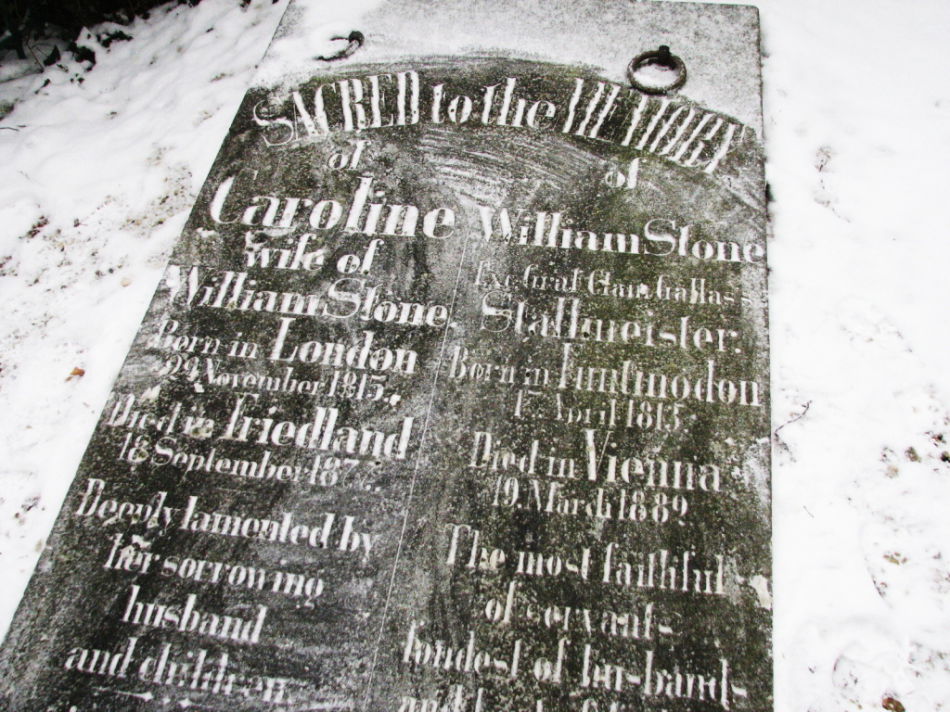 SACRED to the MEMORY
of
Caroline
wife of
William Stone.
Born in London
29 November 1815.
Died in Friedland
18 September 187
Deeply lamented by
her sorrowing
husband
and children
of
William Stone
Exc. Graf Clam Gallas's
Stallmeister.
Born in Huntinodon
April 1815
Died in Vienna
19. March 1889
The most faithful
of servants
fondest of husbands